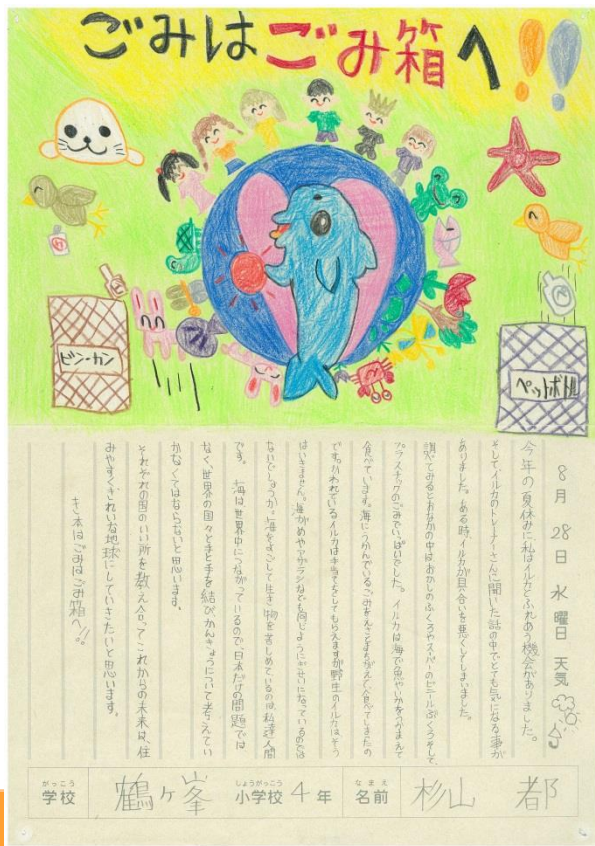 ごみはごみ箱へ!!
ビン・カン
ペットボトル
8月28日水曜日天気
今年の夏休みに、私はイルカとふれあう機会がありました。
そしてイルカのトレーナーさんに聞いた話の中でとても気になる事が
ありました。ある時、イルカが具合いを悪くしてしまいました。
調べてみるとおなかの中はおかしのふくろやスーパーのビニールぶくろそして、
プラスチックのごみでいっぱいでした。イルカは海で魚やいかをつかまえて
食べています。海にうかんでいるごみをえさとまちがえて食べてしまたの
です。かわれているイルカは手当てをしてもらえますが野生のイルカはそう
はいきません。海がめやアザラシなども同じようにぎせいになっているのでは
ないでしょうか。海をよごして生き物を苦しめているのは、私達人間
です。海は世界中につながっているので、日本だけの問題では
なく、世界の国々ときと手を結びかんきょうについて考えてい
かなくてはならないと思います。
それぞれの国のいい所を教え合ってこれからの未来は、住
みやすくきれいな地球にしていきたいと思います。
き本はごみはごみ箱へ!!。
がっこう
学校
鶴ヶ峯
しょうがっこう
小学校
4年
なまえ
名前
杉山 都